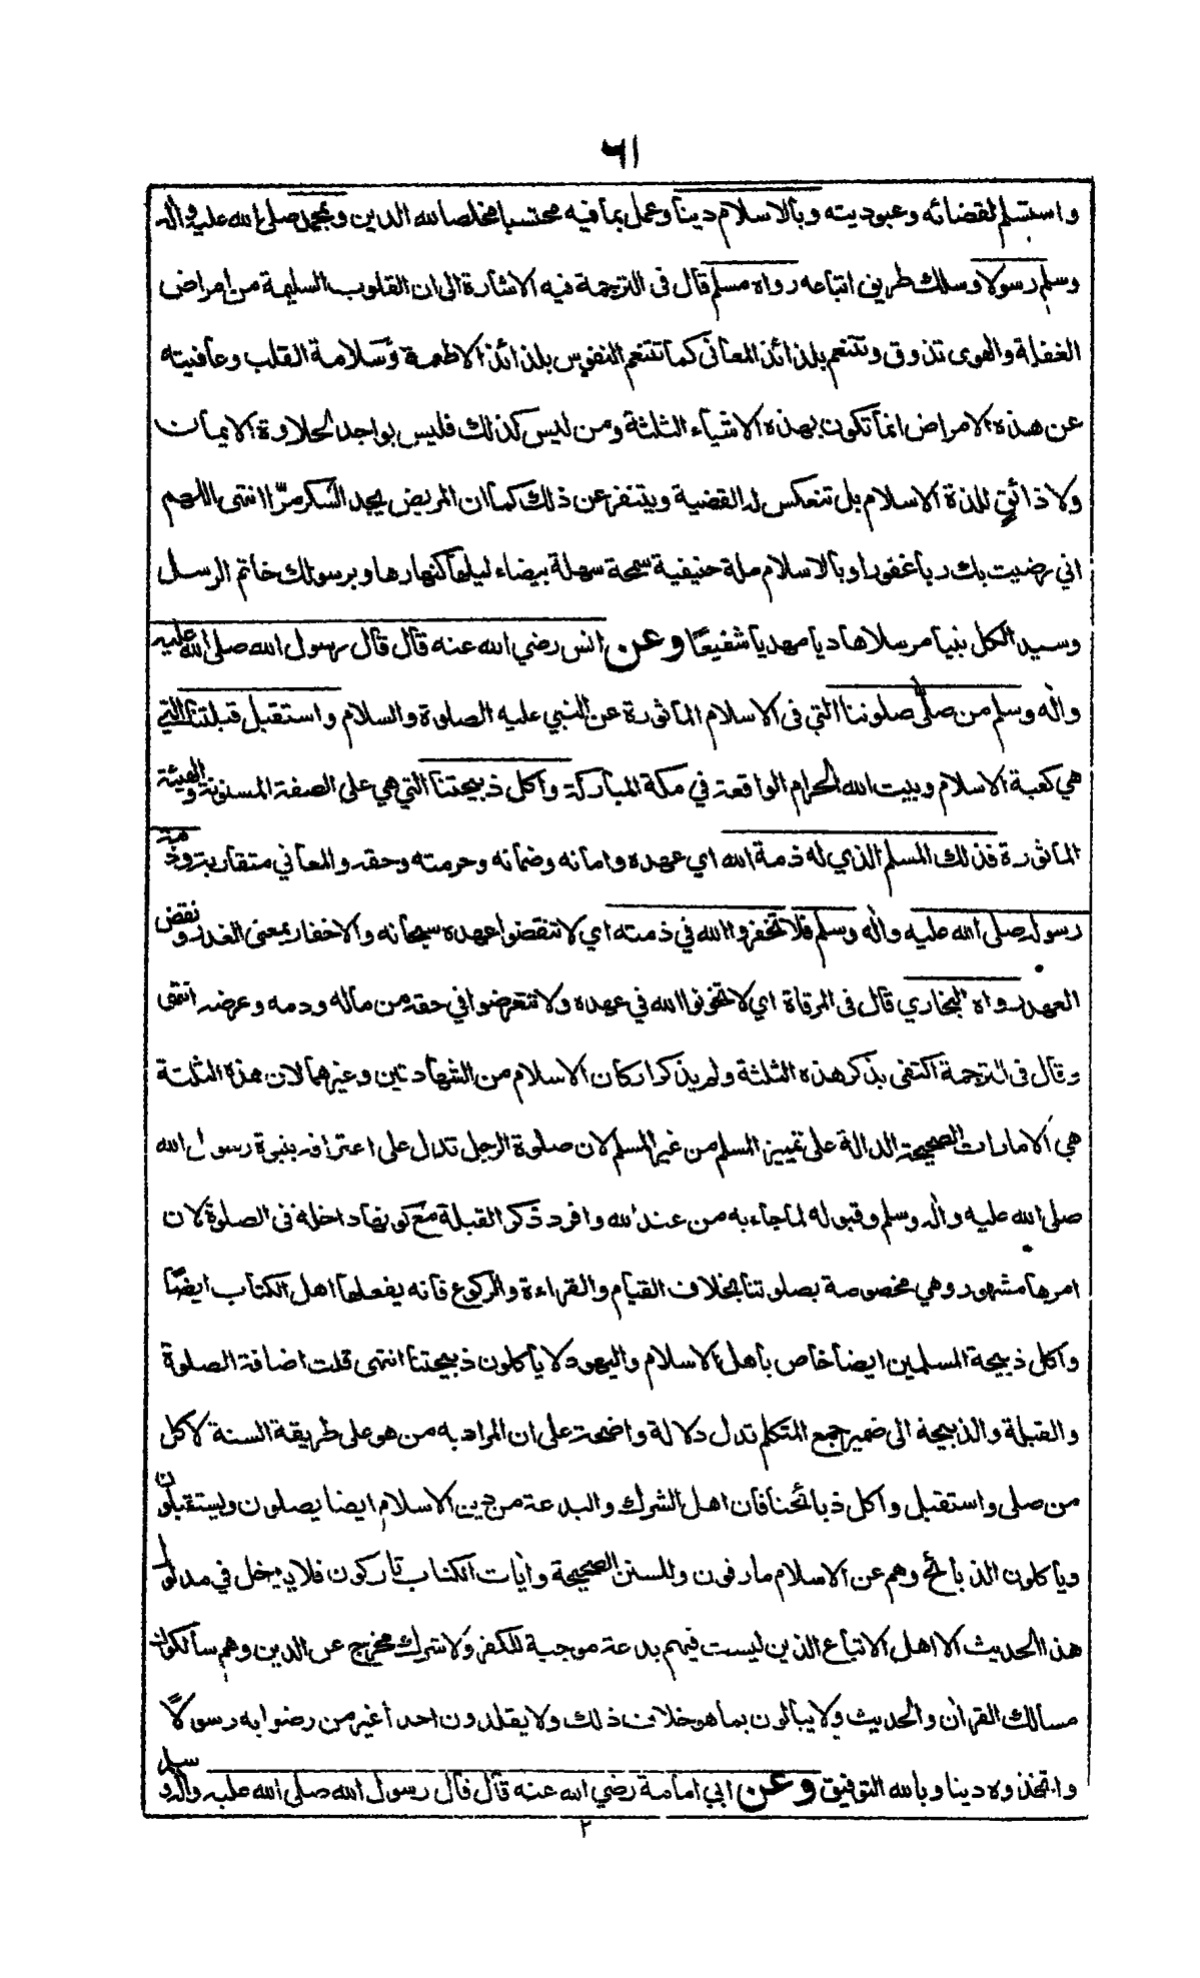 ٦١
واستسلم لقضائه وعبوديته وبالاسلام دينا وعمل بما فيه محتسبا مخلصا لله الدين وبمحمد صلى الله عليه واله
وسلم رسولا وسلك طريق اتباعه رواه مسلم قال فى الترجمة فيه الاشارة الى ان القلوب السليمة من امراض
الغفلة والهوى تذوق وتتنعم بلذائذ المعانى كما تتنعم النفوس بلذائذ الاطعمة وسلامة القلب وعافيته
عن هذه الامراض انما تكون بهذه الاشياء الثلثة ومن ليس كذلك فليس بواجد لحلاوة الايمان
ولا ذائق للذة الاسلام بل تنعكس له القضية ويتنفر عن ذلك كما ان المريض يجد السكر مرّا انتهى اللهم
اني رضيت بك ربا غفورا وبالاسلام ملة حنيفية سمحة سهلة بيضاء ليلها كنهارها وبرسولك خاتم الرسل
وسيد الكل نبيا مرسلا هاديا مهديا شفيعًا وعن انس رضي الله عنه قال قال رسول الله صلى الله عليه
واله وسلم من صلى صلوتنا التي فى الاسلام الماثورة عن النبي عليه الصلوة والسلام واستقبل قبلتنا التي
هي كعبة الاسلام وبيت الله الحرام الواقعة في مكة المباركة واكل ذبيحتنا التي هي على الصفة المسنونة والهيئة
الماثورة فذلك المسلم الذي له ذمة الله اي عهده وامانه وضمانه وحرمته وحقه والمعاني متقاربة وذمة
رسوله صلى الله عليه واله وسلم فلا تخفروا الله في ذمته اي لا تنقضوا عهده سبحانه والاخفار بمعنى الغدر ونقض
العهد رواه البخاري قال فى المرقاة اي لا تخونوا الله في عهده ولا تتعرضوا في حقه من ماله ودمه وعرضه انتهى
وقال فى الترجمة اكتفى بذكر هذه الثلثة ولم يذكر اركان الاسلام من الشهادتين وغيرهما لان هذه الثلثة
هي الامارات الصحيحة الدالة على تمييز المسلم من غير المسلم لان صلوة الرجل تدل على اعترافه بنبوة رسول الله
صلى الله عليه واله وسلم وقبوله لما جاء به من عند الله وافرد ذكر القبلة مع كونها داخلة فى الصلوة لان
امرها مشهور وهي مخصوصة بصلوتنا بخلاف القيام والقراءة والركوع فانه يفعلها اهل الكتاب ايضًا
واكل ذبيحة المسلمين ايضا خاص باهل الاسلام واليهود لا ياكلون ذبيحتنا انتهى قلت اضافة الصلوة
والقبلة والذبيحة الى ضمير جمع المتكلم تدل دلالة واضحة على ان المراد به من هو على طريقة السنة لا كل
من صلى واستقبل واكل ذبائحنا فان اهل الشرك والبدعة من الاسلام ايضا يصلون ويستقبلون
وياكلون الذبائح وهم عن الاسلام مارقون وللسنن الصحيحة وايات الكتاب تاركون فلا يدخل في مدلول
هذا الحديث الا اهل الاتباع الذين ليست فيهم بدعة موجبة للكفر ولا شرك مخرج عن الدين وهم سالكون
مسالك القران والحديث ولا يبالون بما هو خلاف ذلك ولا يقلدون احدا غير من رضوا به رسولًا
واتخذوه دينا وبالله التوفيق وعن ابي امامة رضي الله عنه قال قال رسول الله صلى الله عليه واله وسلم
٢